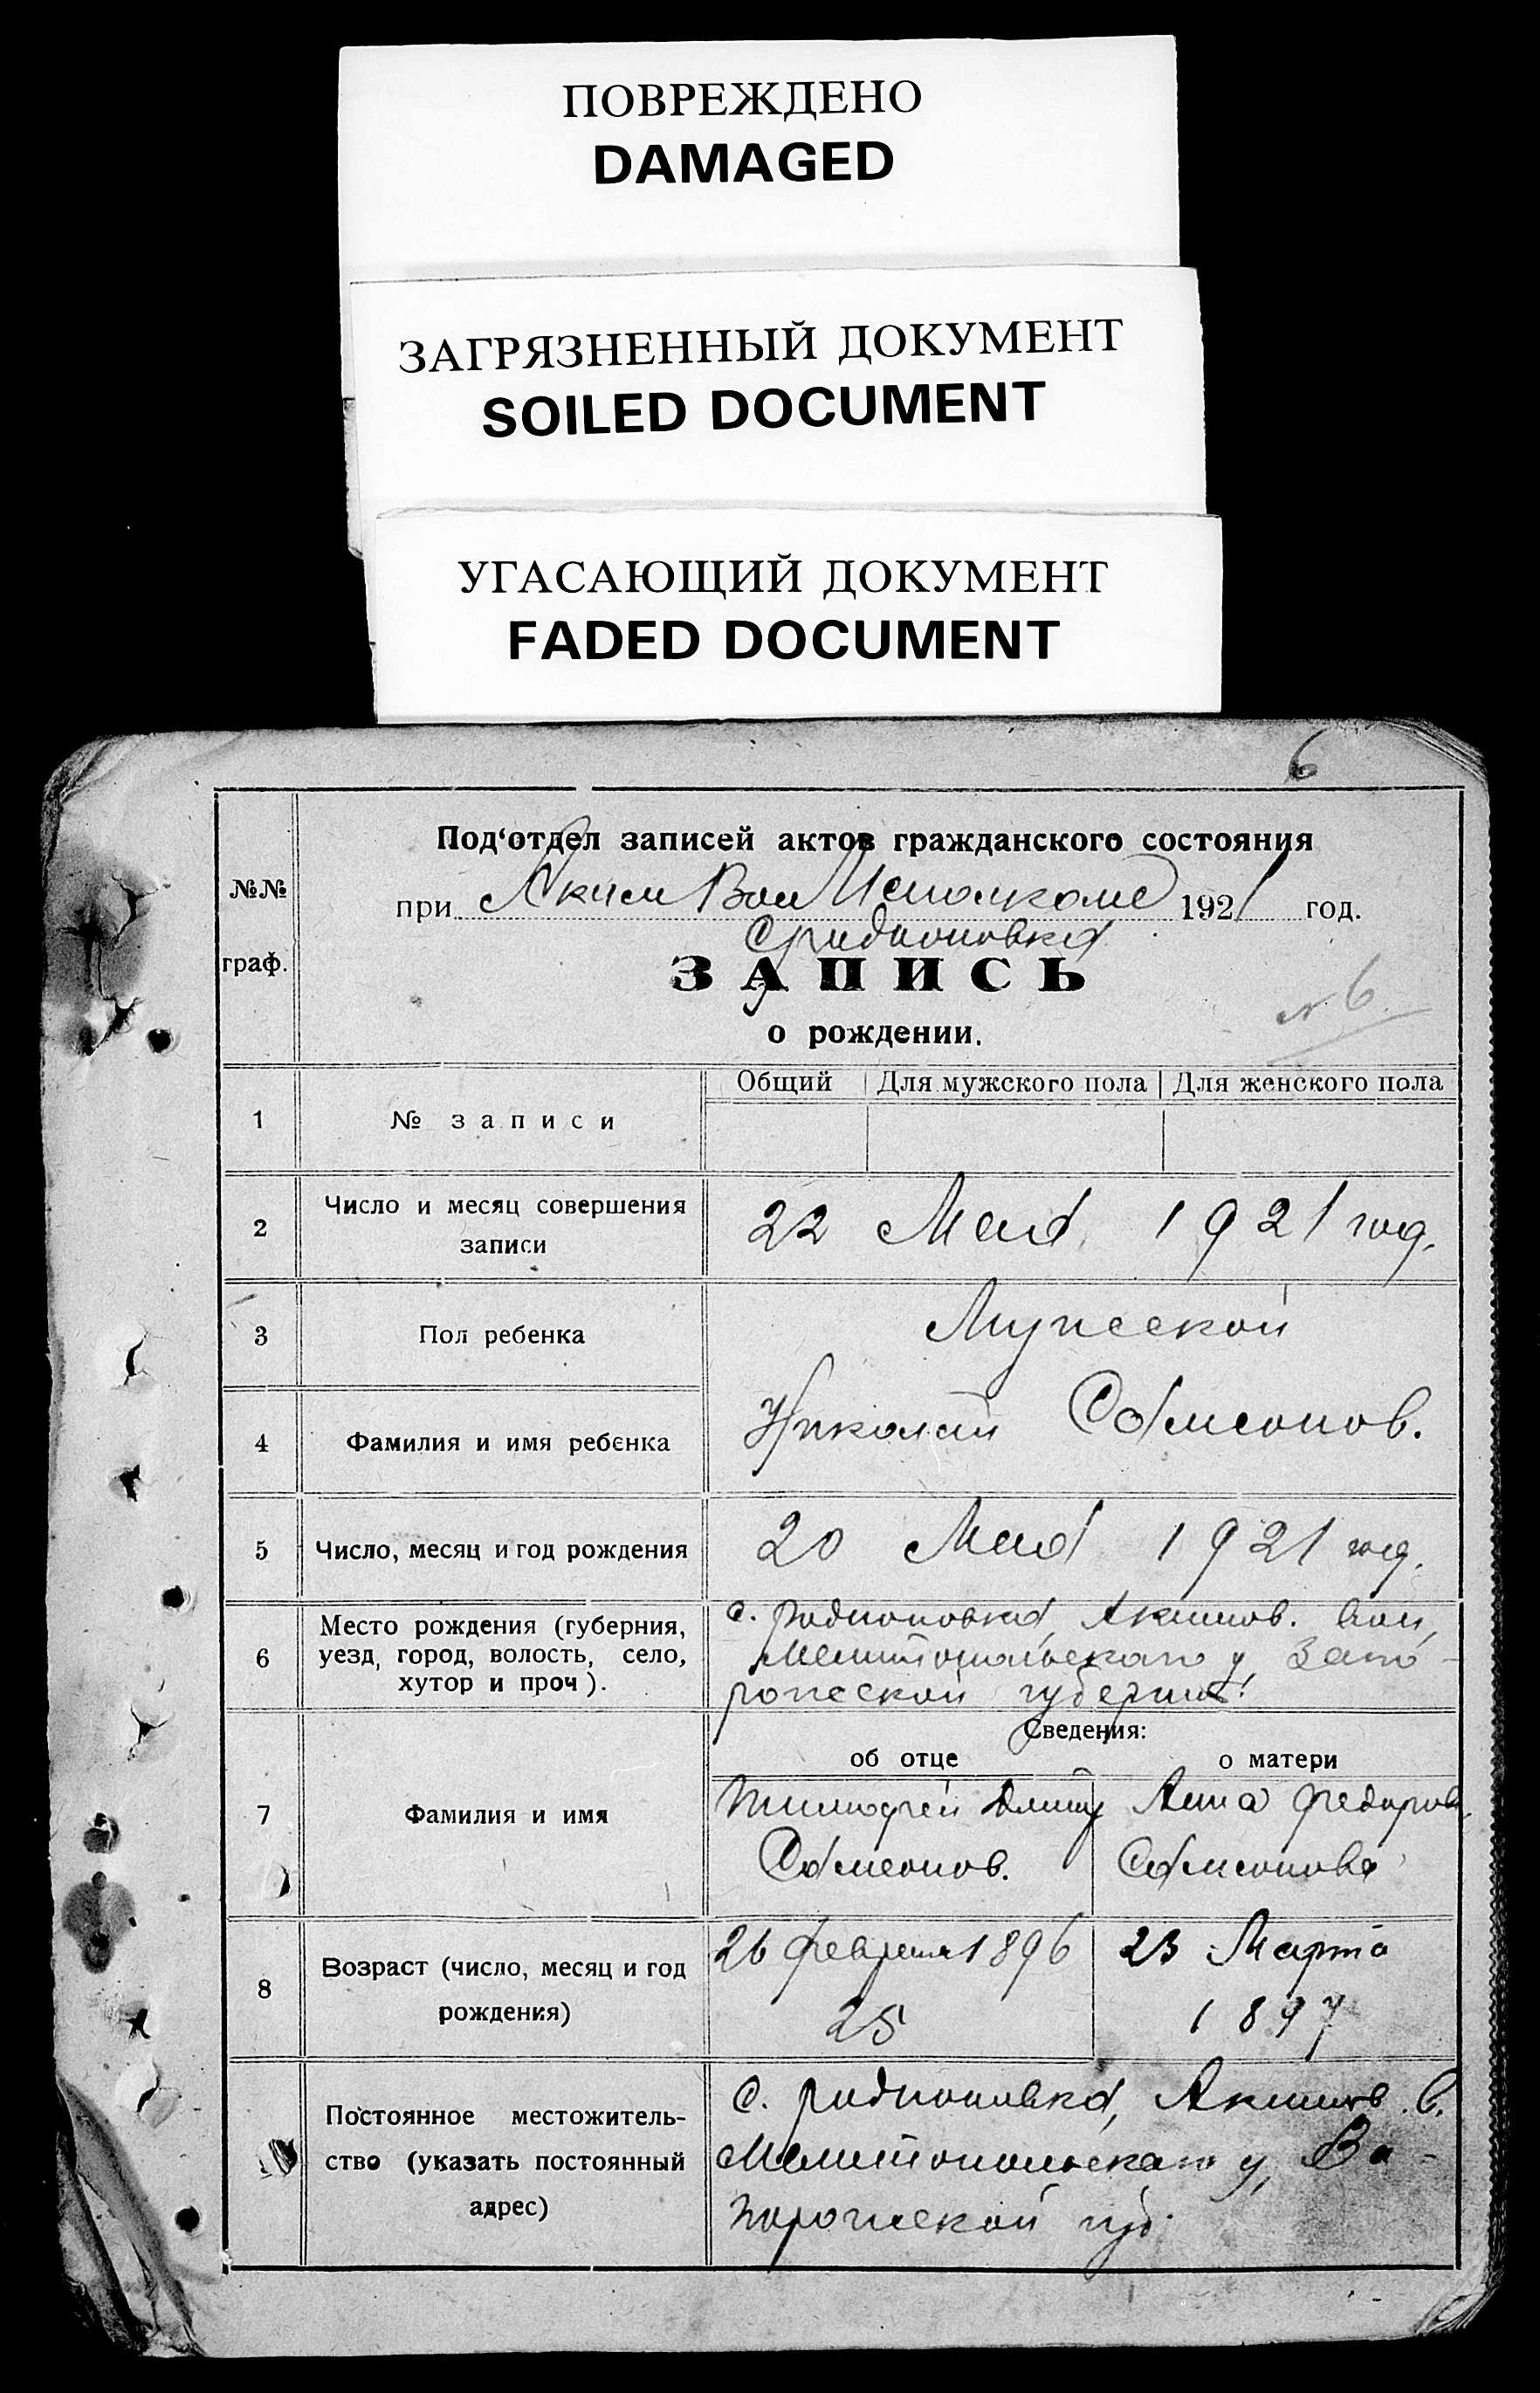 ПОВРЕЖДЕНО
DAMAGED
ЗАГРЯЗНЕННЫЙ ДОКУМЕНТ
SOILED DOCUMENT
УГАСАЮЩИЙ ДОКУМЕНТ
FADED DOCUMENT
6
Под‘отдел записей актов гражданского состояния
№№ граф.
при Аким Вол Исполкоме 1921 год.
С родионовка
ЗАПИСЬ
о рождении.
№ 6.
Общий Для мужского пола Для женского пола
1 № записи
2 Число и месяц совершения записи
22 Мая 1921 год.
3 Пол ребенка
Мужской
4 Фамилия и имя ребенка
Николай Самсонов.
5 Число, месяц и год рождения
20 Мая 1921 год.
6 Место рождения (губерния,
уезд, город, волость, село,
хутор и проч).
с. родионовка, Акимов. вол,
Мелитопольскаго у, Запо-
рожской губернии
Сведения:
об отце о матери
7 Фамилия и имя
Тимофей Дмит Анна Федоров.
Самсонов. Самсонова
8 Возраст (число, месяц и год
рождения)
26 февраля 1896 23 Марта
25 1897
Постоянное местожитель-
ство (указать постоянный
адрес)
с. родионовка, Акимов. в.
Мелитопольскаго у, За-
порожской губ.